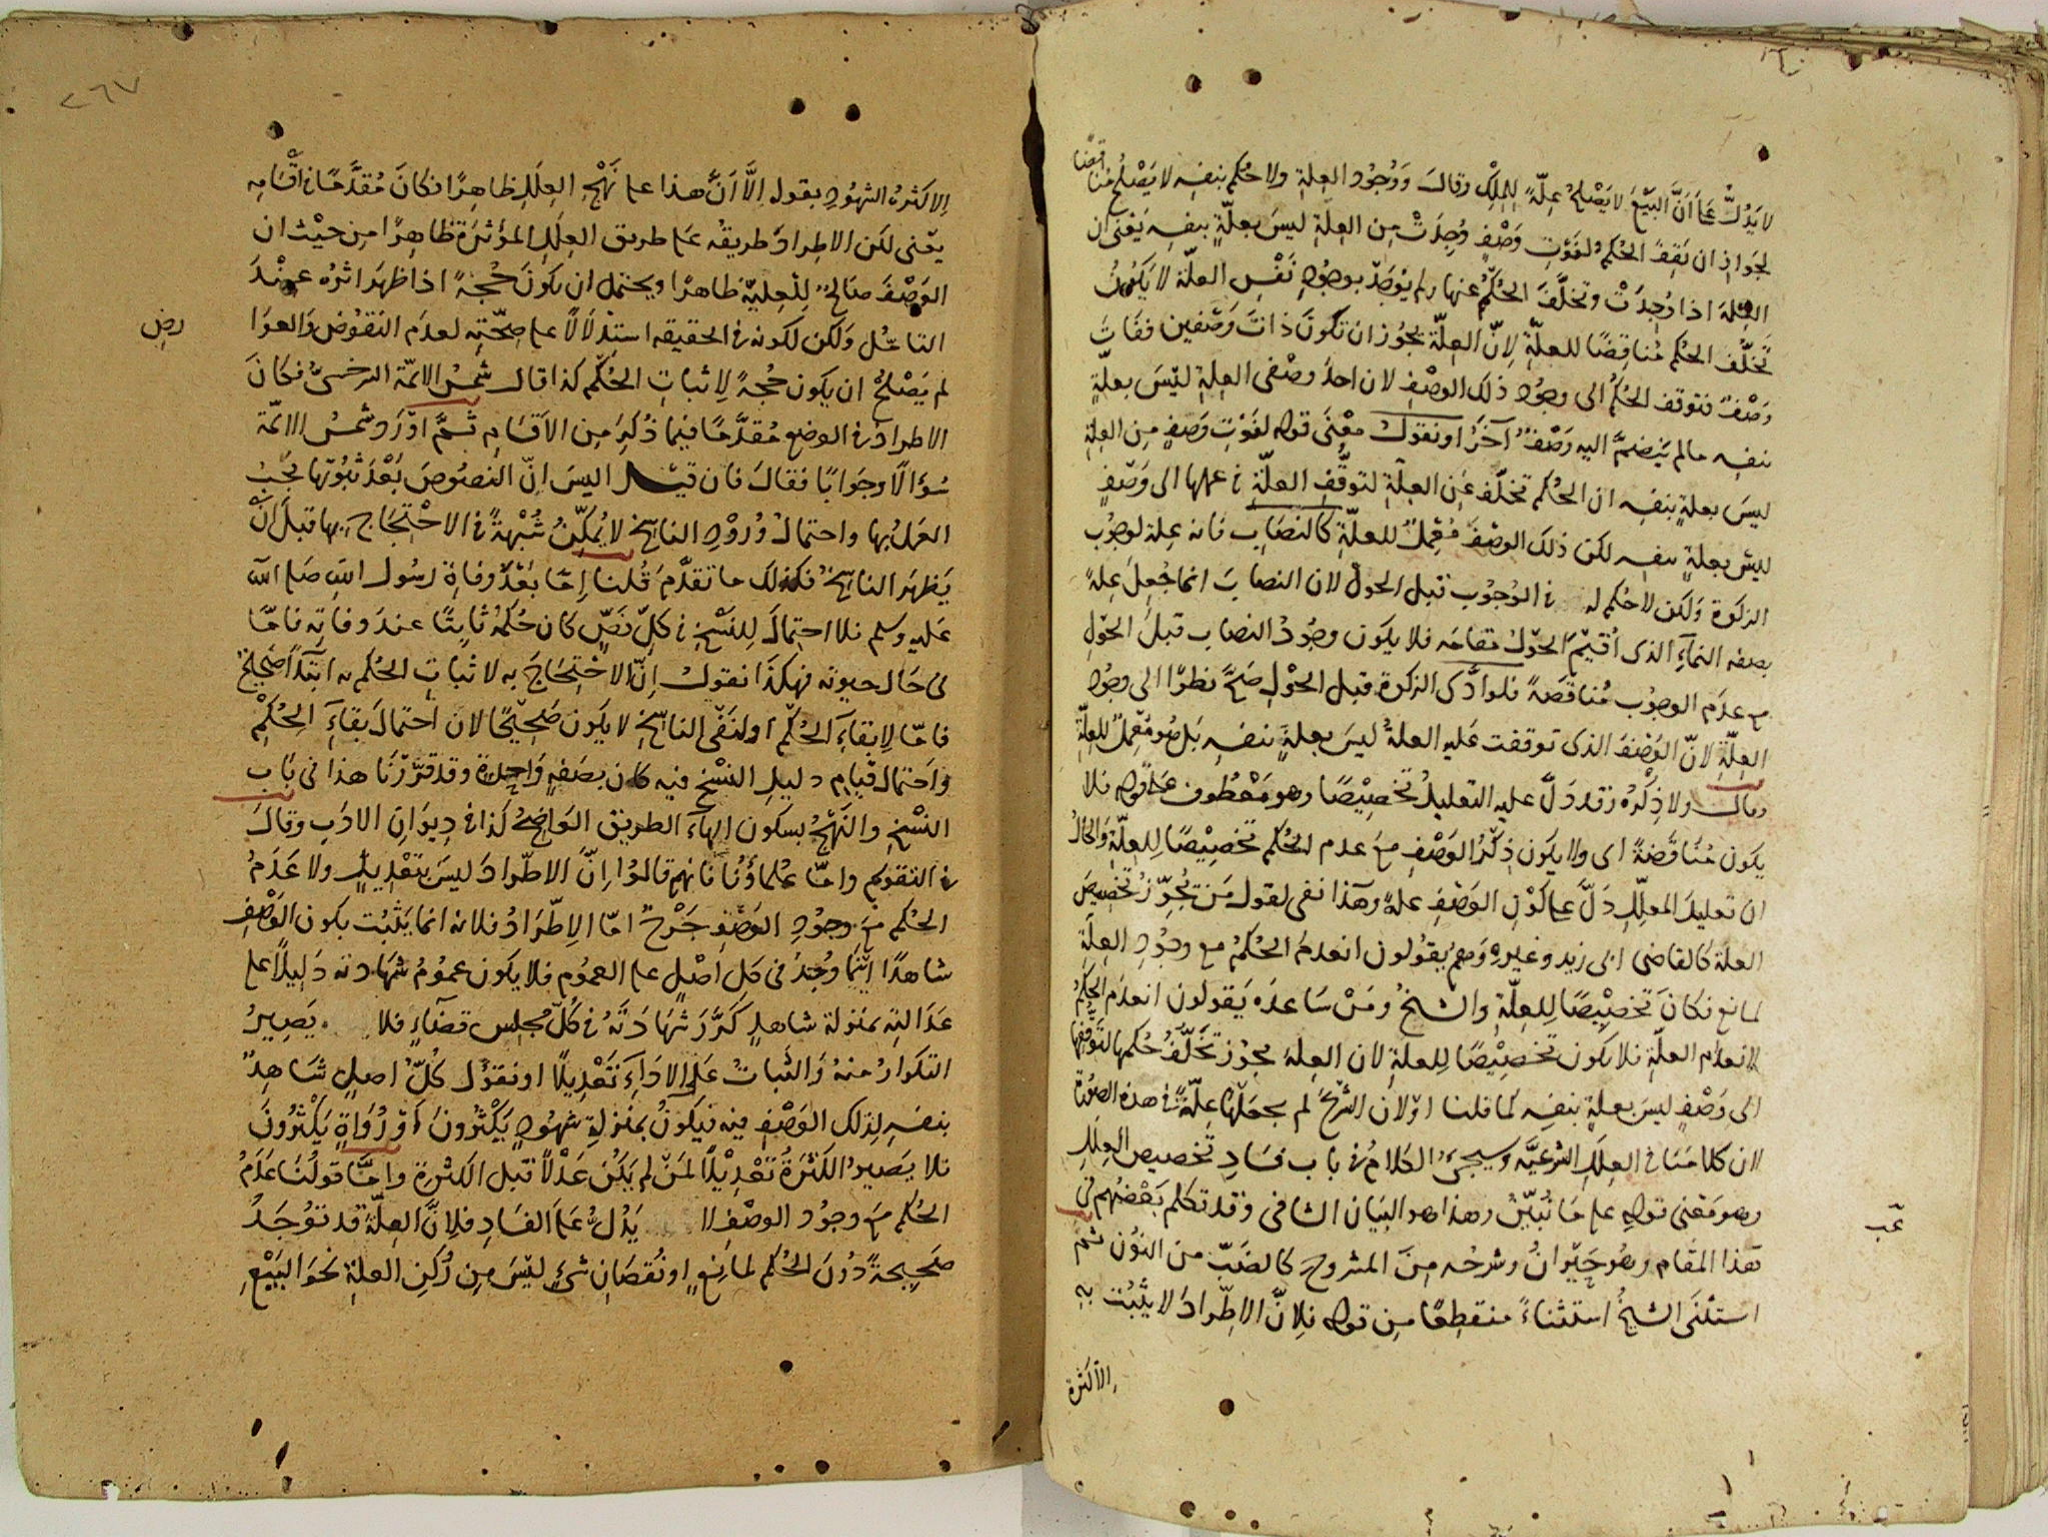 لا يَدُلُّ على اَنَّ البَيْعَ لا يَصْلحُ عِلّةً للمِلْكِ وقالَ وَوُجُود العِلّةِ ولا حُكم بنفسِه لا يَصْلحُ مُناقضًا
لجَوازِ ان يَقِفَ الحُكمُ لفَوْتِ وَصْفٍ وُجِدَتْ مِن العِلّةِ ليسَ بعلّةٍ بنفسِه يَعْنى ان
العِلّةَ اذا وُجِدَتْ وتخلَّفَ الحُكمُ عنها ولم يُوجَدْ بوجُودِ نَفْسِ العلّةِ لا يَكُونُ
تَخلُّف الحُكم مُناقِضًا للعلّةِ لِانّ العِلّةَ يجُوز ان تكونَ ذاتَ وَصْفين ففاتَ
وَصْفٌ فتوقف الحُكمُ الى وجُودِ ذلك الوصْفِ لان احدَ وصْفى العِلّةِ ليْسَ بعلّةٍ
بنفسِه مالم يَنْضمَّ اليه وَصْفٌ آخَرُ او نقولُ معْنَى قوله لفَوْتِ وَصْفٍ مِن العِلّةِ
ليسَ بعلّةٍ بنفسِه ان الحُكم تخلّفَ عَنِ العلّةِ لتوقُّفِ العلّةِ فى عملها الى وَصْفٍ
ليْسَ بعلّةٍ بنفسِه لكن ذلك الوصْفَ مُعْمِلٌ للعلّةِ كالنصَابِ فانه عِلة لوجُوب
الزكوة ولكن لا حُكم له فى الوُجُوب قبل الحول لان النصابَ انما جُعِلَ عِلةً
بصفة النمآءِ الذى اُقيْمَ الحَوْلُ مقامَه فلا يكون وجُودُ النصاب قبلَ الحَوْلِ
مع عدَم الوجوب مُناقضَةً فلو ادَّى الزكوة قبل الحَوْلِ صَحَّ نظرًا الى وجُودِ
العِلّةِ لانّ الوَصْفَ الذى توقفت عَليه العلةُ ليسَ بعلةٍ بنفسِه بَل هُو مُعْمِلٌ للعلّةِ
وقال ولا ذِكْرُه وقد دَلَّ عليه التعليلُ تخصِيْصًا وهو مَعْطُوف على قوله فلا
يكون مُنَاقضَةً اى ولا يكون ذِكْرُ الوَصْفِ مَعَ عدم الحُكم تخصِيْصًا لِلعلّةِ والحالُ
ان تعليلَ المعلِّلِ دَلَّ على كَوْنِ الوَصْفِ علةً وهَذا نفى لقول مَن يُجوِّزُ تخصيصَ
العلة كالقاضى ابى زيد وغيرِه وهم يقُولون انعدمَ الحُكمُ مع وجُودِ العِلّةِ
لمانع فكانَ تخصِيْصًا لِلعِلّةِ والشيخُ ومَنْ سَاعدَه يَقولون انعدَم الحُكمُ
لانعدَام العلّةِ فلا يكون تخصِيْصًا لِلعلةِ لان العلةَ يجوْز تَخَلُّفُ حُكمها لتوقُّفِها
الى وَصْفٍ ليسَ بعلةٍ بنفسِه لما قلنا او لان الشَّرْعَ لم يجعَلْها عِلّةً فى هذه الصُورة
لان كلامَنا فى العِلَلِ الشرعيَّة وسيجىءُ الكلامُ فى باب فسَادِ تخصيص العِلَلِ
وهو مَعْنى قولِه على مَا نُبيِّنُ وهذا هو البَيان الشافى وقد تكلم بَعْضُهم فى
هذا المقام وهُو حَيْرانُ وشرحُه مِنَ المشروح كالضبّ من النوْن ثم
استثنَى الشيخُ استثناءً منقطِعًا مِن قوله فلِانَّ الاطِّرادَ لا يثبُت به
الا كَثرة
عب
٢٦٧
الا كَثرة الشهُودِ بقوله اِلَّا اَنَّ هذا على نَهْجِ العِلَلِ ظاهِرًا فكانَ مُقدَّمًا فى اَقْسَامِه
يعْنى لكن الاطِرادَ طريقُه على طريق العِلَلِ المؤثرَةِ ظاهِرًا مِن حيْث ان
الوَصْفَ صَالحٌ لِلعِلّيّةِ ظاهرًا ويحتمل ان يكونَ حُجةً اذا ظهَر اثرُه عنْدَ
التامُّل ولكن لكونه فى الحقيقه استدْلالًا على صِحّتِه لعدَم النقوُض والعوَا
رض
لم يَصْلُحْ ان يكون حُجةً لِاثباتِ الحُكم كذا قال شمسُ الائمّة السرخسىُّ فكانَ
الاطرادُ فى الوضع مُقدَّمًا فيما ذُكِرَ مِن الاَقسَامِ ثمَّ اوْرَدَ شمسُ الائمّة
سُؤالًا وجَوابًا فقالَ فان قيْلَ اليسَ انّ النصُوصَ بَعْدَ ثبُوتها يجبُ
العمَلُ بها واحتمالُ وُرُوْدِ الناسِخِ لا يُمَكِّنُ شُبْهةً فى الاحْتِجَاجِ بها قبلَ انْ
يَظهَرَ الناسِخُ فكذلك ما تقدَّمَ قُلنا اِمّا بَعْدَ وفاةِ رسُول اللهِ صَلى اللهُ
عَليه وسلم فلا احتِمالَ لِلنَّسْخِ فى كلِّ نصٍّ كان حُكمُه ثابتًا عند وفاتِه فامّا
فى حَال حيوته فهكذَا نقولُ اِنّ الاحْتِجَاجَ به لاثباتِ الحُكم به ابتدَآءً صَحِيحٌ
فامّا لِابقآءِ الحُكمِ او لنَفْى الناسِخِ لا يكون صَحِيْحًا لان احتمالَ بقآءِ الحُكْمِ
واحتمالَ قيامِ دليلِ النسْخِ فيه كان بصفةٍ واحِدَةٍ وقد قرَّرْنا هذا فى بَابِ
النسْخِ والنَهْجُ بسكون الهآءِ الطريق الوَاضِحُ كَذا فى ديوَانِ الادَبِ وقالَ
فى التقويم وامّا علماؤُنا فانهم قالوُا اِنَّ الاطّرادَ ليسَ بتعْدِيلٍ ولا عَدَمُ
الحُكم مَعَ وجُودِ الوَصْفِ جَرْحٌ امّا الِاطّرَادُ فلانه انما يَثبُت بكون الوَصْفِ
شاهدًا اَيْنَما وُجِدَ فى كل اَصْلٍ على العمُوم فلا يكون عمُومُ شهَادته دَليلًا على
عَدَالتِه بمَنزلة شاهدٍ كرَّرَ شهَادَتَهُ فى كلّ مجلِس قضَآءٍ فلا يَصِيرُ
التكرارُ منهُ والثباتُ عَلَى الاَدَآءِ تَعْدِيلًا او نقوْل كُلُّ اصلٍ شَاهِدٌ
بنفسِه لِذلك الوَصْفِ فيه فيَكُونُ بمَنزلةِ شهُودٍ يَكْثرُونَ اَوْ رُوَاةٍ يَكْثرُونَ
فلا يَصِيرُ الكَثرَةُ تعْدِيْلًا لمَنْ لم يَكُنْ عَدْلًا قبل الكثْرةِ وامَّا قولُنا عَدَمُ
الحُكم مَع وجُود الوصْفِ لا يَدُلُّ عَلى الفسَادِ فلِانَّ العِلّةَ قد توُجَدُ
صَحِيحةً دُوْنَ الحُكم لمانعٍ او نُقصَانِ شىءٍ ليْسَ مِن رُكنِ العلّةِ نحَو البَيْعِ